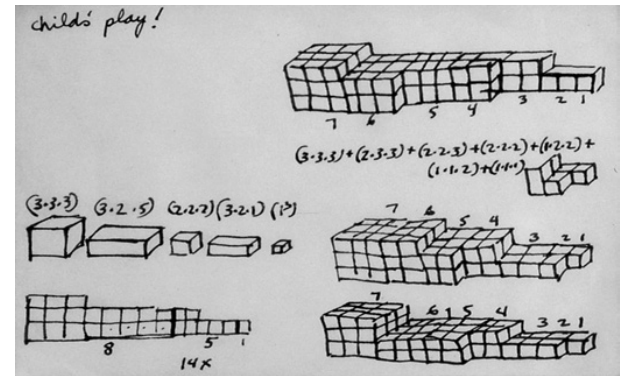 child's play!
7 6 5 4 3 2 1
(3·3·3)+(2·3·3)+(2·2·3)+(2·2·2)+(1·2·2)+
(1·1·2)+(1·1·1)
(3·3·3) (3·2·5) (2·2·2) (3·2·1) (1³)
7 6 5 4 3 2 1
8 5 1
14x
7 6 5 4 3 2 1